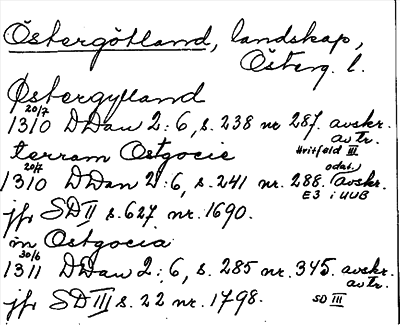 Östergötland, landskap,
Österg. l.
Østergylland
20/7
1310 DDan 2:6, s. 238 nr 287. avskr.
av tr.
terram Ostgocie Hvitfeld III
20/7 odat.)
1310 DDan 2:6, s. 241 nr. 288. (avskr.
E3 i UUB
jfr SD II s. 627 nr. 1690.
in Ostgocia
30/6
1311 DDan 2:6, s. 285 nr. 345. avskr.
av tr.
jfr SD III s. 22 nr. 1798. SD III